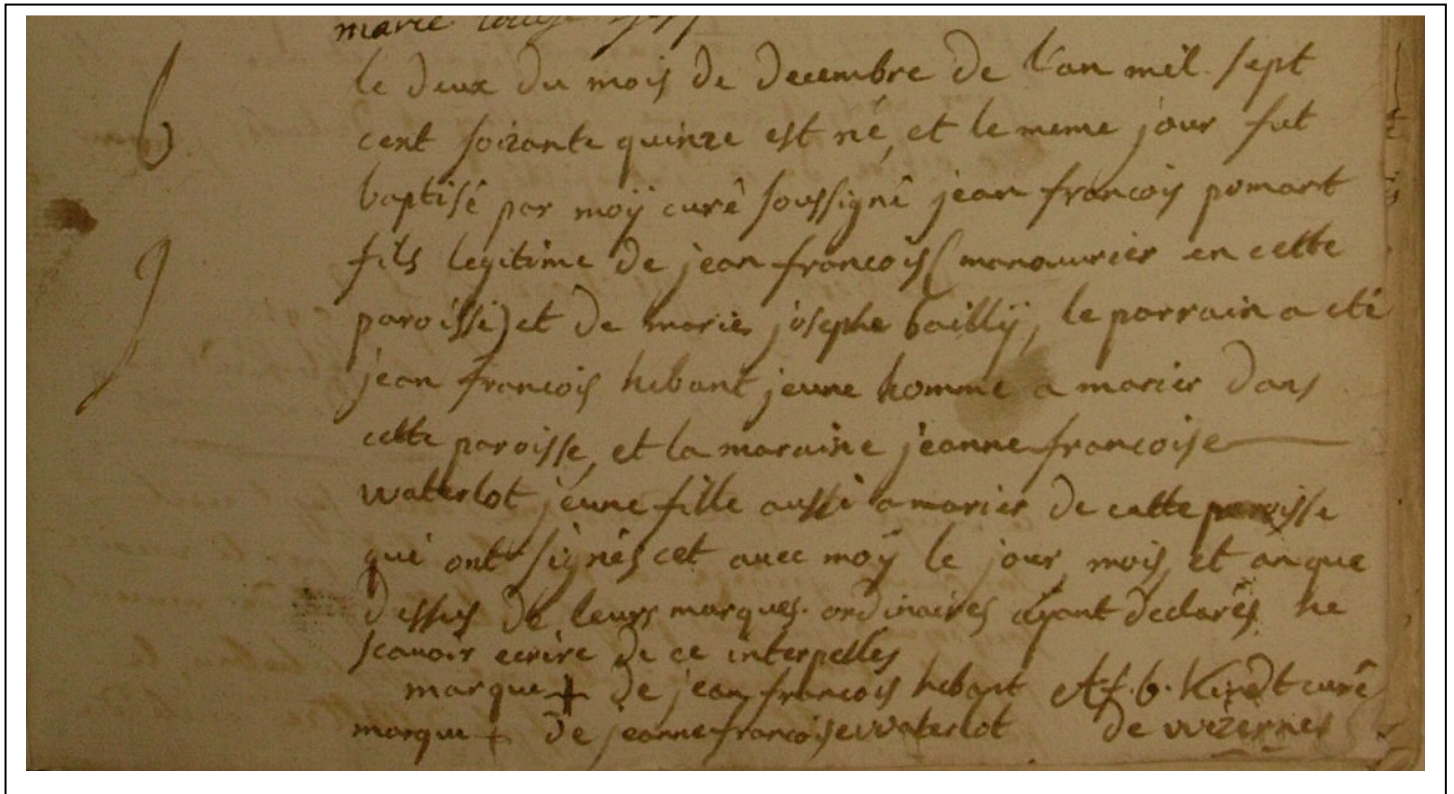 marie
le deux du mois de decembre de l'an mil sept
b
cent soixante quinze est né, et le meme jour fut
baptisé par moÿ curé soussigné jean francois pomart
fils legitime de jean francois (manouvrier en cette
paroisse) et de marie josephe bailly, le parrain a eté
jean francois hebant jeune homme a marier dans
cette paroisse, et la maraine jeanne francoise
waterlot jeune fille aussi a marier de cette paroisse
qui ont signés cet avec moÿ le jour, mois, et an que
dessus de leurs marques ordinaires ayant declarés ne
scavoir ecrire de ce interpellés
marque + de jean francois hebant A.f.b. Kindt curé
marque + de jeanne francoise waterlot de wizernes